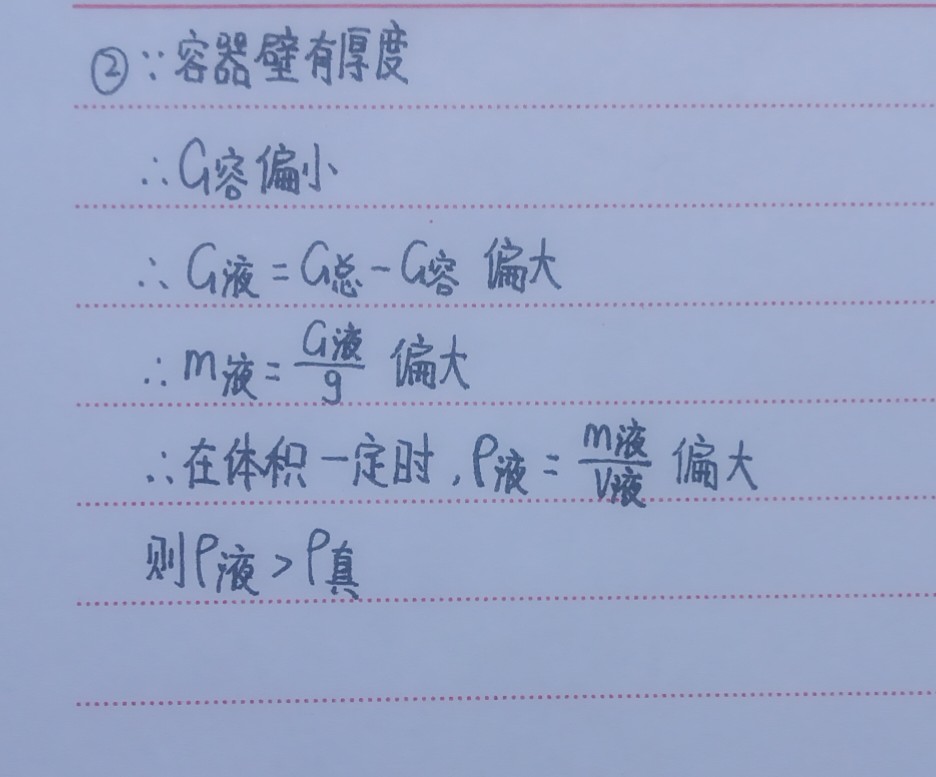 ②∵容器壁有厚度
∴G容偏小
∴G液=G总-G容 偏大
∴m液=G液/g 偏大
∴在体积一定时,ρ液=m液/V液 偏大
则ρ液>ρ真